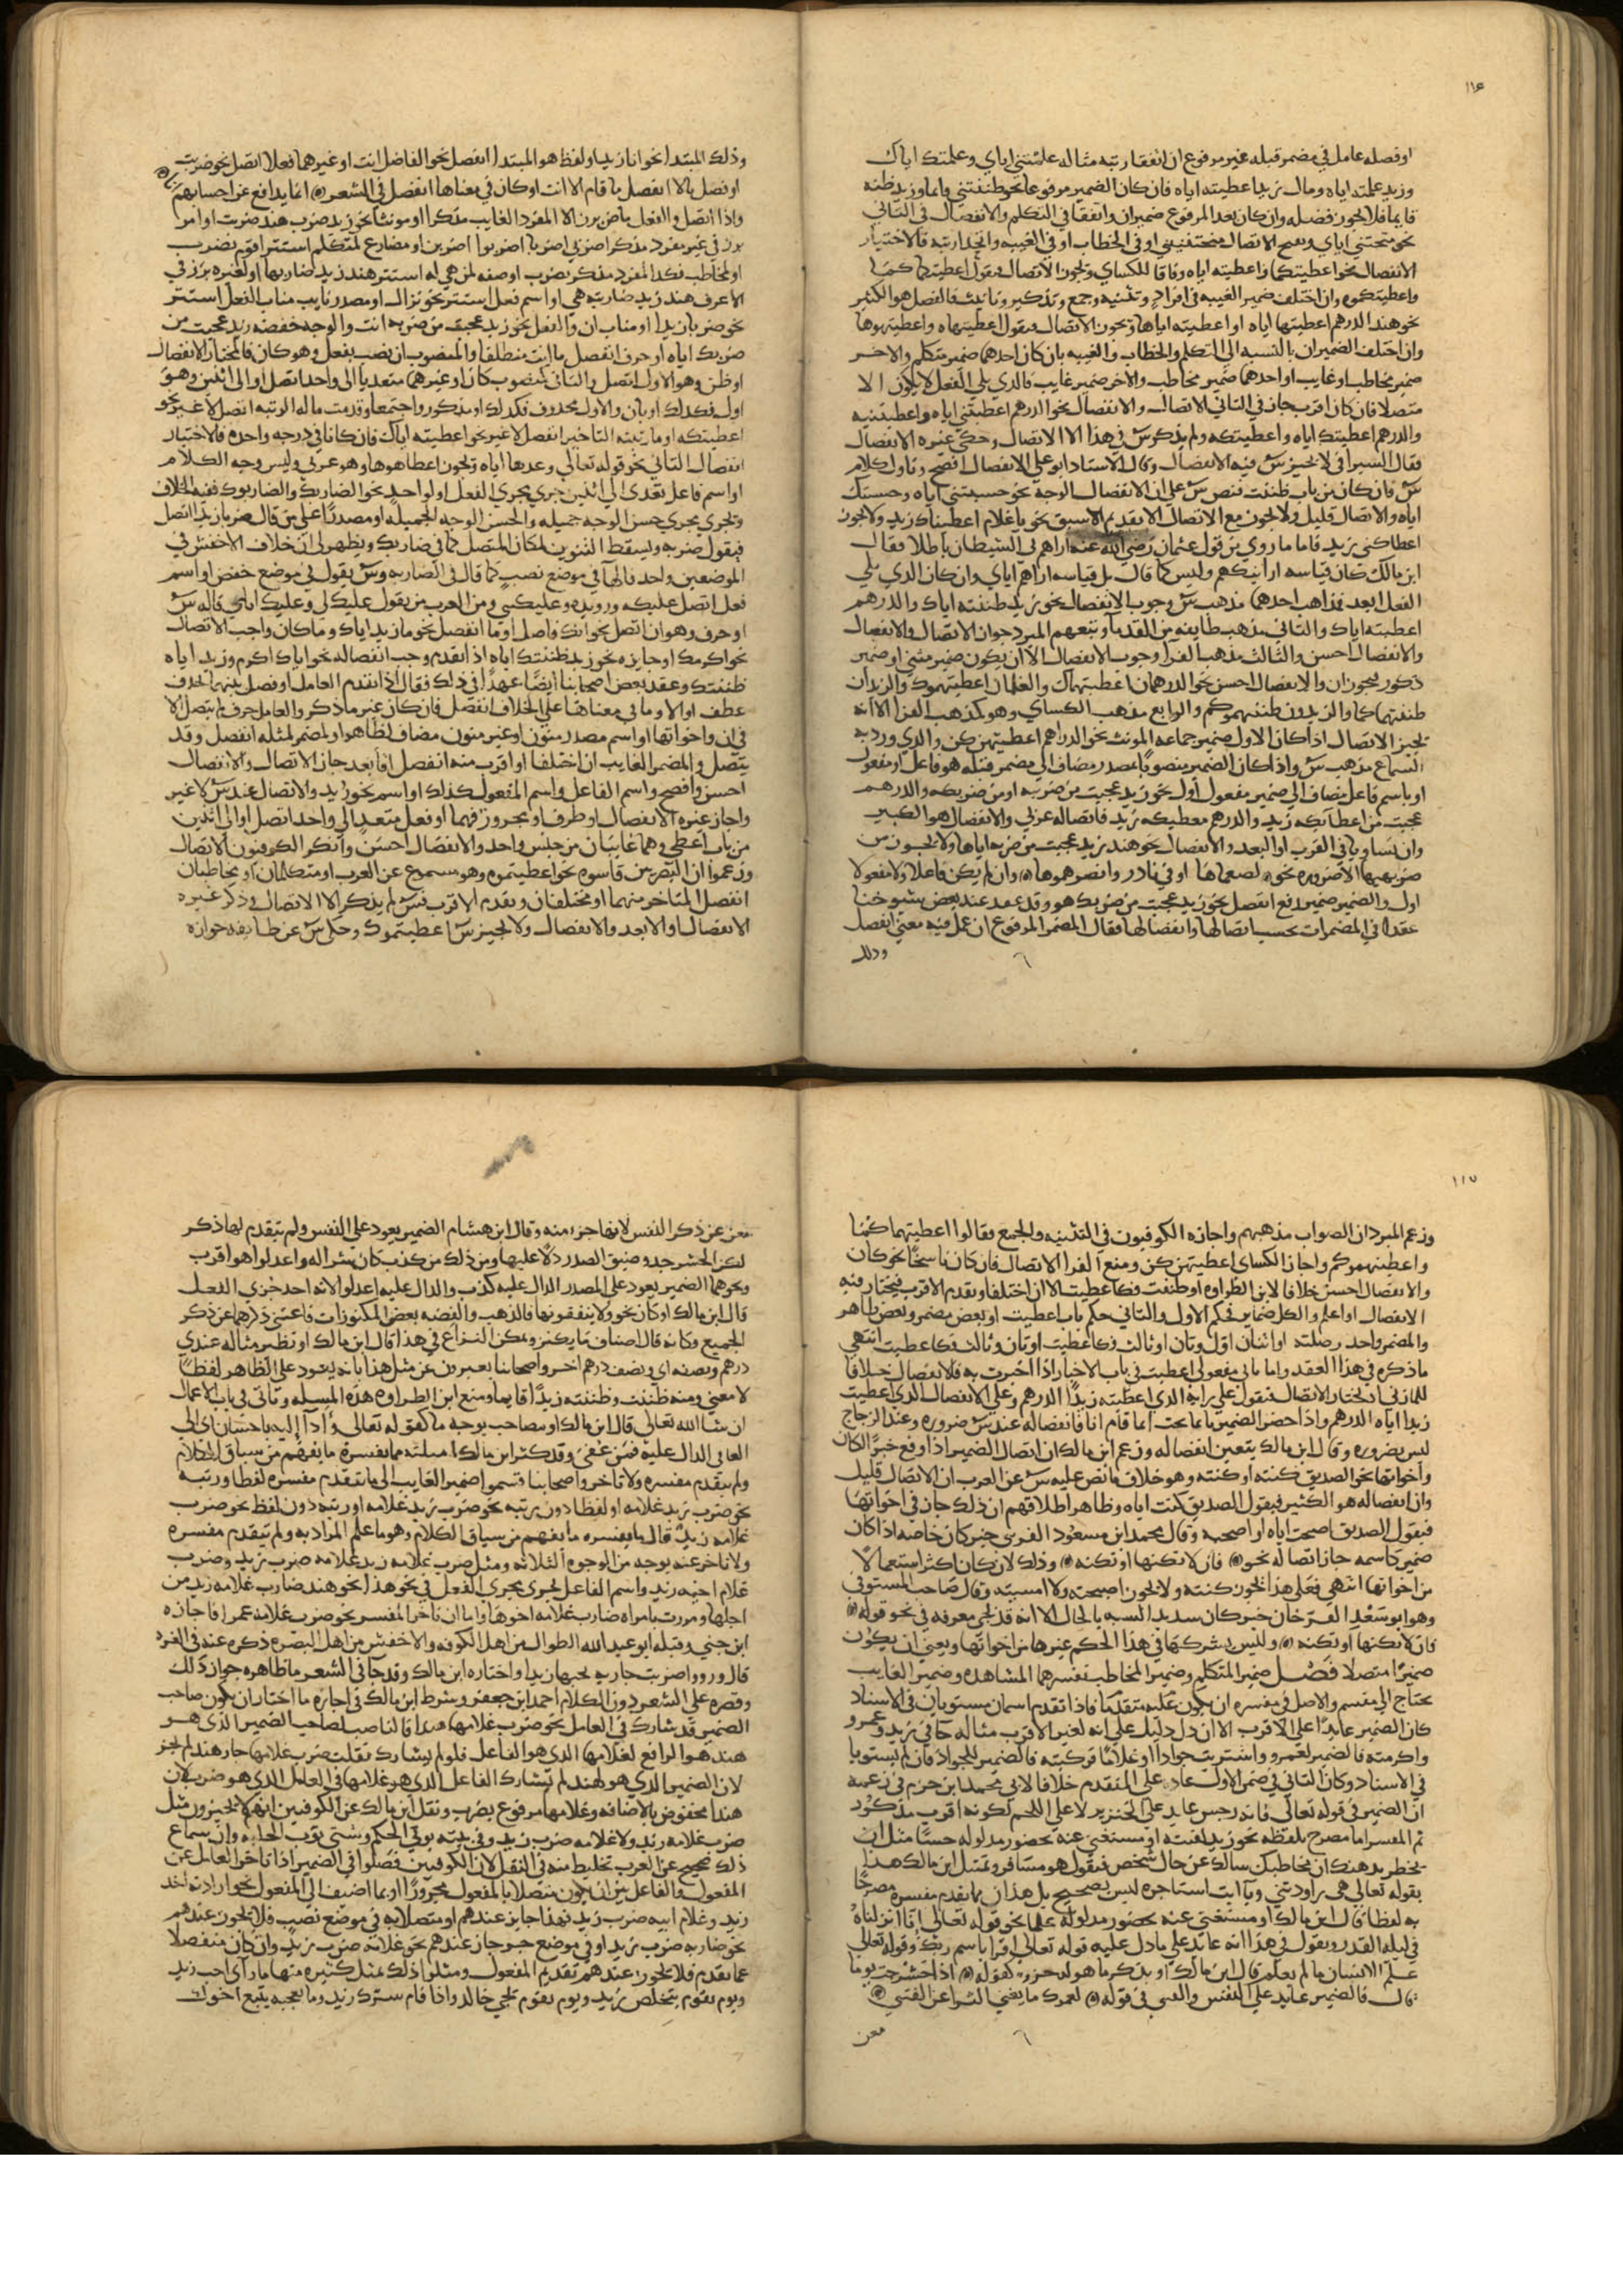 ١١٦
او فصله عامل في مضمر قبله غير مرفوع ان اتفقا رتبه مثاله علمتني اياي وعلمتك اياك
وزيد علمته اياه ومال زيد اعطيته اياه فان كان الضمير مرفوعا نحو ظننتني قايما وزيد ظنه
قايما فلا يجوز فصله وان كان بعد المرفوع ضميران واتفقا في التكلم والانفصال في الثاني
نحو منحتني اياي ويصح الاتصال منحتنيني او في الخطاب او في الغيبه واتحدا رتبه فالاختيار
الانفصال نحو اعطيتكما واعطيته اياه وفاقا للكساي ويجوز الاتصال فيقول اعطيتكما كما
واعطيتكموه وان اختلف ضمير الغيبه في افراد وتثنيه وجمع وتذكير وتانيث فالفصل هو الكثير
نحو هند الدرهم اعطيتها اياه او اعطيته اياها ويجوز الاتصال فيقول اعطيتهاه واعطيتهوها
وان اختلف الضميران بالنسبه الى التكلم والخطاب والغيبه بان كان احدهما ضمير متكلم والاخر
ضمير مخاطب او غايب او احدهما ضمير مخاطب والاخر ضمير غايب فالذي يلي الفعل لا يكون الا
متصلا فان كان اقرب جاز في الثاني الاتصال والانفصال نحو الدرهم اعطيتني اياه واعطيتنيه
والدرهم اعطيتك اياه واعطيتكه ولم يذكر س في هذا الا الاتصال وحكى غيره الانفصال
فقال السيرافي لا يجيز س فيه الانفصال وقال الاستاذ ابو علي الانفصال افصح وتاول كلام
س فان كان من باب ظننت فنص س على ان الانفصال الوجه نحو حسبتني اياه وحسبتك
اياه والاتصال قليل ولا يجوز مع الاتصال الا تقديم الاسبق نحو يا غلام اعطيناك زيد ولا يجوز
اعطاكني زيد فاما ما روي من قول عثمان رضي الله عنه اراهمني الشيطان باطلا فقال
ابن مالك كان قياسه ارانيهم وليس كما قال بل قياسه اراهم اياي وان كان الذي يلي
الفعل ابعد فمذاهب احدها مذهب س وجوب الانفصال نحو زيد ظننته اياك والدرهم
اعطيته اياك والثاني مذهب طايفه من القدما وتبعهم المبرد جواز الاتصال والانفصال
والانفصال احسن والثالث مذهب الفرا وجوب الانفصال الا ان يكون ضمير مثنى او ضمير
ذكور فيجوزان والانفصال احسن نحو الدرهمان اعطيتهماك والغلمان اعطيتهموك والزيدان
ظننتهما كما والزيدون ظننتهموكم والرابع مذهب الكساي وهو كمذهب الفرا الا انه
يجيز الاتصال اذا كان الاول ضمير جماعه المونث نحو الدراهم اعطيتهن كن والذي ورد به
السماع مذهب س واذا كان الضمير منصوبا بمصدر مضاف الى مضمر قبله هو فاعل او مفعول
او باسم فاعل مضاف الى ضمير مفعول اول نحو زيد عجبت من ضربيه او من ضربكه والدرهم
عجبت من اعطائكه زيد والدرهم معطيكه زيد فاتصاله عربي والانفصال هو الكثير
وان تساويا في القرب او البعد والانفصال نحو هند زيد عجبت من ضربه اياها ولا يجوز من
ضربهيها الا ضروره نحو لضغمهماها او في نادر وانضرهموها وان لم يكن فاعلا ولا مفعولا
اول والضمير ضمير رفع انفصل نحو زيد عجبت من ضربك هو وقد عقد عند بعض شيوخنا
عقدا في المضمرات بحسب اتصالها وانفصالها فقال المضمر المرفوع ان عمل فيه معنى انفصل
وذلك
وذلك المبتدا نحو انا زيد او لفظ هو المبتدا انفصل نحو الفاضل انت او غيرهما فعلا اتصل نحو ضربت
او فصل بالا انفصل ما قام الا انت او كان في معناها انفصل في الشعر انما يدافع عن احسابهم
واذا اتصل والفعل ماض برز الا المفرد الغايب مذكرا او مونثا نحو زيد ضرب هند ضربت او امر
برز في غير مفرد مذكر اضربي اضربا اضربوا اضربن او مضارع لمتكلم استتر اقوم نضرب
او لمخاطب فكذا المفرد مذكر تضرب او صفه لمن هي له استتر هند زيد ضاربها او لغيره برز في
الاعرف هند زيد ضاربته هي او اسم فعل استتر نحو نزال او مصدر نايب مناب الفعل استتر
نحو ضربا زيدا او مناب ان والفعل نحو زيد عجبت من ضربه انت والوجه خفضه زيد عجبت من
ضربك اياه او حرف انفصل ما انت منطلقا والمنصوب ان نصب بفعل وهو كان فالمختار الانفصال
او ظن وهو الاول اتصل والثاني كمنصوب كان او غيرهما متعديا الى واحد اتصل او الى اثنين وهو
اول فكذلك او ثان والاول محذوف فكذلك او مذكور واجتمعا وقدمت ماله الرتبه اتصل لا غير نحو
اعطيتكه او ما رتبته التاخير انفصل لا غير نحو اعطيته اياك فان كانا في درجه واحده فالاختيار
انفصال الثاني نحو قوله تعالى وعدها اياه ويجوز اعطاهوها وهو عربي وليس وجه الكلام
او اسم فاعل تعدى الى اثنين جرى مجرى الفعل او لواحد نحو الضاربك والضاربوك ففيه الخلاف
ويجري مجرى حسن الوجه جميله والحسن الوجه الجميله او مصدرا على من قال ضربا زيدا اتصل
فيقول ضربه ويسقط التنوين لمكان المتصل كما في ضاربك ويظهر لي ان خلاف الاخفش في
الموضعين واحد فالها في موضع نصب كما قال في الضاربه وس يقول في موضع خفض او اسم
فعل اتصل عليكه ورويده وعليكني ومن العرب من يقول عليك لي وعليك اياي قاله س
او حرف وهو ان اتصل نحو انك فاضل او ما انفصل نحو ما زيد اياك وما كان واجب الاتصال
نحو اكرمك او جايزه نحو زيد ظننتك اياه اذا تقدم وجب انفصاله نحو اياك اكرم وزيد اياه
ظننتك وعقد بعض اصحابنا ايضا عهدا في ذلك فقال اذا تقدم العامل او فصل بينهما بحرف
عطف او الا وما في معناها على الخلاف انفصل فان كان غير ما ذكر والعامل حرف لم يتصل الا
في ان واخواتها او اسم مصدر منون او غير منون مضاف لظاهر او لمضمر لمثله انفصل وقد
يتصل والمضمر الغايب ان اختلفا او اقرب منه انفصل او ابعد جاز الاتصال والانفصال
احسن وافصح واسم الفاعل واسم المفعول كذلك او اسم نحو رويد والاتصال عند س لا غير
واجاز غيره الانفصال او ظرف او مجرور فيهما او فعل متعد الى واحد اتصل او الى اثنين
من باب اعطى وهما غايبان من جنس واحد والانفصال احسن وانكر الكوفيون الاتصال
وزعموا ان البصريين قاسوه نحو اعطيتموه وهو مسموع عن العرب او متكلمان او مخاطبان
انفصل المتاخر منهما او مختلفان وتقدم الاقرب فس لم يذكر الا الاتصال وذكر غيره
الانفصال او الابعد والانفصال ولا يجيز س اعطيتموك وحكى س عن طايفه جوازه
١١٧
وزعم المبرد ان الصواب مذهبهم واجازه الكوفيون في التثنيه والجمع فقالوا اعطيتهما كما
واعطيتهموكم واجاز الكساي اعطيتهن كن ومنع الفرا الاتصال فان كان ناسخا نحو كان
والانفصال احسن خلافا لابن الطراوه او ظننت فكاعطيت الا ان اختلفا وتقدم الاقرب فيختار فيه
الانفصال او اعلم والكل ضماير فحكم الاول والثاني حكم باب اعطيت او بعض مضمر وبعض ظاهر
والمضمر واحد وصلته او اثنان اول وثان او ثالث فكاعطيت او ثان وثالث فكاعطيت انتهى
ما ذكره في هذا العقد واما ثاني مفعولي اعطيت في باب الاخبار اذا اخبرت به فلا انفصال خلافا
للمازني اذ يختار الاتصال فيقول على رايه الذي اعطيته زيدا الدرهم وعلى الانفصال الذي اعطيت
زيدا اياه الدرهم واذا حصر الضمير بانما نحو انما قام انا فانفصاله عند س ضروره وعند الزجاج
ليس بضروره وقال ابن مالك يتعين انفصاله وزعم ابن مالك ان اتصال الضمير اذا وقع خبرا لكان
واخواتها نحو الصديق كنته او كنته وهو خلاف ما نص عليه س عن العرب ان الاتصال قليل
وان انفصاله هو الكثير فيقول الصديق كنت اياه وظاهر اطلاقهم ان ذلك جاز في اخواتها
فيقول الصديق اصبحت اياه او اصبحه وقال محمد ابن مسعود الغزني خبر كان خاصه اذا كان
ضميرا كاسمه جاز اتصاله نحو فان لا تكنها او تكنه وذلك لان كان اكثر استعمالا
من اخواتها انتهى فعلى هذا يجوز كنته ولا يجوز اصبحته ولا امسيته وقال صاحب المستوفى
وهو ابو سعد الفرخان خبر كان شديد الشبه بالحال الا انه قد يجي معرفه في نحو قوله
فان لا تكنها او تكنه وليس يشركها في هذا الحكم غيرها من اخواتها ويعني ان يكون
ضميرا متصلا فصل ضمير المتكلم وضمير المخاطب تفسرهما المشاهده وضمير الغايب
يحتاج الى مفسر والاصل في مفسره ان يكون عليه متقدما فاذا تقدم اسمان مستويان في الاسناد
كان الضمير عايدا على الاقرب الا ان دل دليل على انه لغير الاقرب مثاله جا في زيد وعمرو
واكرمته فالضمير لعمرو واشتريت جوادا وغلاما فركبته فالضمير للجواد فان لم يستويا
في الاسناد وكان الثاني في ضمن الاول عاد على المتقدم خلافا لابي محمد ابن حزم في زعمه
ان الضمير في قوله تعالى فانه رجس عايد على الخنزير لا على اللحم لكونه اقرب مذكور
ثم المفسر اما مصرح بلفظه نحو زيد لقيته او مستغنى عنه بحضور مدلوله حسا مثل ان
يخطر بذهنك ان مخاطبك سالك عن حال شخص فيقول هو مسافر وتمثيل ابن مالك هذا
بقوله تعالى هي راودتني ويا ابت استاجره ليس بصحيح بل هذان مما تقدم مفسره مصرحا
به لفظا قال ابن مالك او مستغنى عنه بحضور مدلوله علما نحو قوله تعالى انا انزلناه
في ليله القدر ويقول في هذا انه عايد على ما دل عليه قوله تعالى اقرا باسم ربك وقوله تعالى
علم الانسان ما لم يعلم قال ابن مالك او بذكر ما هو له جزء كقوله اذا حشرجت يوما
قال فالضمير عايد على النفس والفتى في قوله لعمرك ما يغني الثرا عن الفتى
مغن
مغن عن ذكر النفس لانها جزء منه وقال ابن هشام الضمير يعود على النفس ولم يتقدم لها ذكر
لكن الحشرجه وضيق الصدر دلا عليها ومن ذلك من كذب كان شرا له واعدلوا هو اقرب
ونحوهما الضمير يعود على المصدر الدال عليه كذب والدال عليه اعدلوا لانه احد جزي الفعل
قال ابن مالك او كان نحو ولا ينفقونها فالذهب والفضه بعض المكنوزات فاغنى ذكرهما عن ذكر
الجميع وكانه قال اصناف ما يكنز ويمكن النزاع في هذا قال ابن مالك او نظير مثاله عندي
درهم ونصفه اي ونصف درهم اخر واصحابنا يعبرون عن مثل هذا بانه يعود على الظاهر لفظا
لا معنى ومنه ظننت وظننته زيدا قايما ومنع ابن الطراوه هذه المسيله وتاتي في باب الاعمال
ان شا الله تعالى قال ابن مالك او مصاحب بوجه ما كقوله تعالى واداء اليه باحسان اي الى
العافي الدال عليه فمن عفي وقد كثر ابن مالك امثله مما يفسره ما يفهم من سياق الكلام
ولم يتقدم مفسره ولا تاخر واصحابنا قسموا ضمير الغايب الى ما يتقدم مفسره لفظا ورتبه
نحو ضرب زيد غلامه او لفظا دون رتبه نحو ضرب زيد غلامه او رتبه دون لفظ نحو ضرب
غلامه زيد قال ما يفسره ما يفهم من سياق الكلام وهو ما علم المراد به ولم يتقدم مفسره
ولا تاخر عنه بوجه من الوجوه الثلاثه ومثل ضرب غلامه زيد غلامه ضرب زيد وضرب
غلام اخيه زيد واسم الفاعل يجري مجرى الفعل في نحو هذا نحو هند ضارب غلامه زيد من
اجلها ومررت بامراه ضارب غلامه اخوها واما ان تاخر المفسر نحو ضرب غلامه عمرا فاجازه
ابن جني وقبله ابو عبد الله الطوال من اهل الكوفه والاخفش من اهل البصره ذكره عنه في الغره
قال ورووا ضربت جاريه يحبها زيدا واختاره ابن مالك وقد جا في الشعر ما ظاهره جواز ذلك
وقصره على الشعر دون الكلام احمد ابن جعفر وشرط ابن مالك في اجازه ما اختار ان يكون صاحب
الضمير قد شارك في العامل نحو ضرب غلامها هندا فالناصب لصاحب الضمير الذي هو
هند هو الرافع لغلامها الذي هو الفاعل فلو لم يشارك فقلت ضرب غلامها جار هند لم يجز
لان الضمير الذي هو لهند لم يشارك الفاعل الذي هو غلامها في العامل الذي هو ضرب لان
هندا مخفوض بالاضافه وغلامها مرفوع بضرب ونقل ابن مالك عن الكوفيين انهم لا يجيزون مثل
ضرب غلامه زيد ولا غلامه ضرب زيد وفي بيته يوتى الحكم وشتى توب الحلبه وان سماع
ذلك صحيح عن العرب تخليط منه في النقل لان الكوفيين فصلوا في الضمير اذا تاخر العامل عن
المفعول والفاعل بين ان يكون متصلا بالمفعول مجرورا او بما اضيف الى المفعول نحو ارادته اخذ
زيد وغلام ابيه ضرب زيد فهذا جايز عندهم او متصلا به في موضع نصب فلا يجوز عندهم
نحو ضاربه ضرب زيد او في موضع جر جاز عندهم نحو غلامه ضرب زيد وان كان منفصلا
عما تقدم فلا يجوز عندهم تقديم المفعول ومثلوا ذلك بمثل كثيره منها ما راى احب زيد
ويوم يقوم يتخلص زيد ويوم يقوم يجي خالد واذا قام سرك زيد وما يعجبه يتبع اخوك